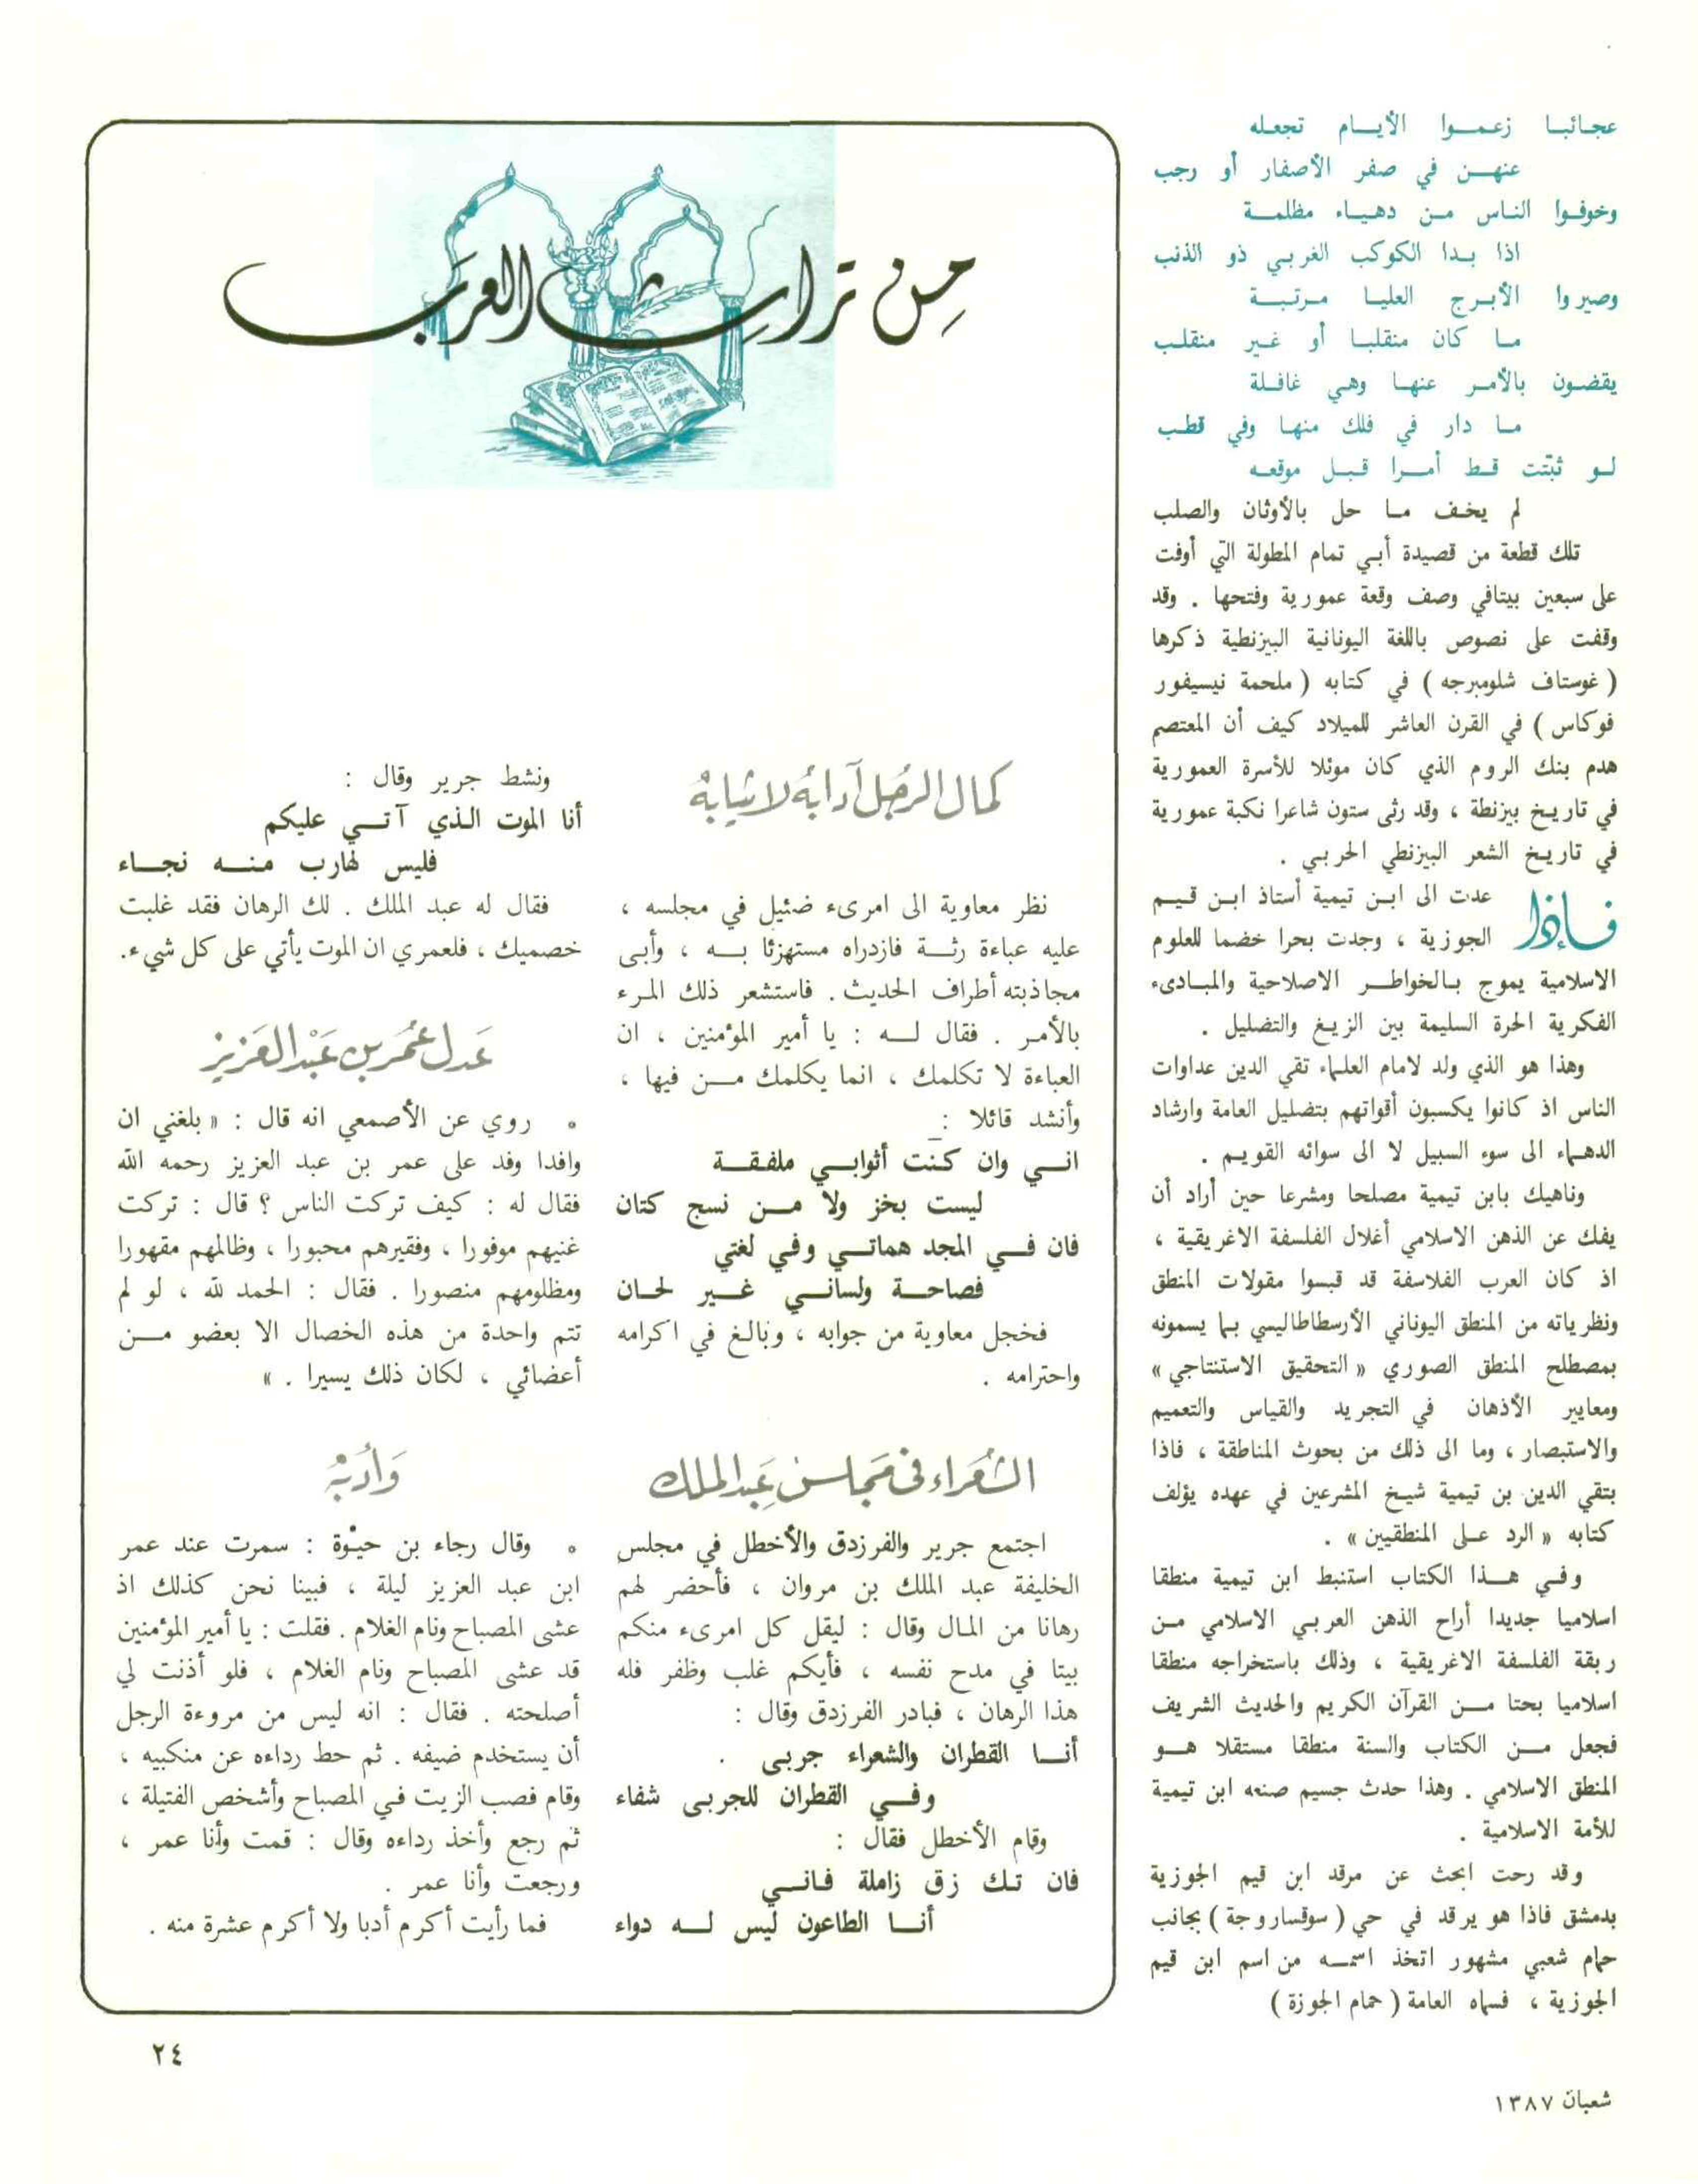 عجائبا زعموا الأيام تجعله
عنهن في صفر الأصفار أو رجب
وخوفوا الناس من دهياء مظلمة
اذا بدا الكوكب الغربي ذو الذنب
وصيروا الأبرج العليا مرتبة
ما كان منقلبا أو غير منقلب
يقضون بالأمر عنها وهي غافلة
ما دار في فلك منها وفي قطب
لو ثبّتت قط أمرا قبل موقعه
لم يخف ما حل بالأوثان والصلب
تلك قطعة من قصيدة أبي تمام المطولة التي أوفت
على سبعين بيتافي وصف وقعة عمورية وفتحها . وقد
وقفت على نصوص باللغة اليونانية البيزنطية ذكرها
( غوستاف شلومبرجه ) في كتابه ( ملحمة نيسيفور
فوكاس ) في القرن العاشر للميلاد كيف أن المعتصم
هدم بنك الروم الذي كان موئلا للأسرة العمورية
في تاريخ بيزنطة ، وقد رثى ستون شاعرا نكبة عمورية
في تاريخ الشعر البيزنطي الحربي .
فإذا عدت الى ابن تيمية أستاذ ابن قيم
الجوزية ، وجدت بحرا خضما للعلوم
الاسلامية يموج بالخواطر الاصلاحية والمبادىء
الفكرية الحرة السليمة بين الزيغ والتضليل .
وهذا هو الذي ولد لامام العلماء تقي الدين عداوات
الناس اذ كانوا يكسبون أقواتهم بتضليل العامة وارشاد
الدهماء الى سوء السبيل لا الى سوائه القويم .
وناهيك بابن تيمية مصلحا ومشرعا حين أراد أن
يفك عن الذهن الاسلامي أغلال الفلسفة الاغريقية ،
اذ كان العرب الفلاسفة قد قبسوا مقولات المنطق
ونظرياته من المنطق اليوناني الأرسطاطاليسي بما يسمونه
بمصطلح المنطق الصوري « التحقيق الاستنتاجي »
ومعايير الأذهان في التجريد والقياس والتعميم
والاستبصار ، وما الى ذلك من بحوث المناطقة ، فاذا
بتقي الدين بن تيمية شيخ المشرعين في عهده يؤلف
كتابه « الرد على المنطقيين » .
وفي هذا الكتاب استنبط ابن تيمية منطقا
اسلاميا جديدا أراح الذهن العربي الاسلامي من
ربقة الفلسفة الاغريقية ، وذلك باستخراجه منطقا
اسلاميا بحتا من القرآن الكريم والحديث الشريف
فجعل من الكتاب والسنة منطقا مستقلا هو
المنطق الاسلامي . وهذا حدث جسيم صنعه ابن تيمية
للأمة الاسلامية .
وقد رحت ابحث عن مرقد ابن قيم الجوزية
بدمشق فاذا هو يرقد في حي ( سوقساروجة ) بجانب
حمام شعبي مشهور اتخذ اسمه من اسم ابن قيم
الجوزية ، فسماه العامة ( حمام الجوزة )
من تراث العرب
كمال الرجل آدابه لا ثيابه
نظر معاوية الى امرىء ضئيل في مجلسه ،
عليه عباءة رثة فازدراه مستهزئا به ، وأبى
مجاذبته أطراف الحديث . فاستشعر ذلك المرء
بالأمر . فقال له : يا أمير المؤمنين ، ان
العباءة لا تكلمك ، انما يكلمك من فيها ،
وأنشد قائلا :
اني وان كنت أثوابي ملفقة
ليست بخز ولا من نسج كتان
فان في المجد هماتي وفي لغتي
فصاحة ولساني غير لحان
فخجل معاوية من جوابه ، وبالغ في اكرامه
واحترامه .
الشعراء في مجلس عبد الملك
اجتمع جرير والفرزدق والأخطل في مجلس
الخليفة عبد الملك بن مروان ، فأحضر لهم
رهانا من المال وقال : ليقل كل امرىء منكم
بيتا في مدح نفسه ، فأيكم غلب وظفر فله
هذا الرهان ، فبادر الفرزدق وقال :
أنا القطران والشعراء جربى .
وفي القطران للجربى شفاء
وقام الأخطل فقال :
فان تك زق زاملة فاني
أنا الطاعون ليس له دواء
ونشط جرير وقال :
أنا الموت الذي آتي عليكم
فليس لهارب منه نجاء
فقال له عبد الملك . لك الرهان فقد غلبت
خصميك ، فلعمري ان الموت يأتي على كل شيء.
عدل عمر بن عبد العزيز
• روي عن الأصمعي انه قال : « بلغني ان
وافدا وفد على عمر بن عبد العزيز رحمه الله
فقال له : كيف تركت الناس ؟ قال : تركت
غنيهم موفورا ، وفقيرهم محبورا ، وظالمهم مقهورا
ومظلومهم منصورا . فقال : الحمد لله ، لو لم
تتم واحدة من هذه الخصال الا بعضو من
أعضائي ، لكان ذلك يسيرا . »
وأدبه
• وقال رجاء بن حيْوة : سمرت عند عمر
ابن عبد العزيز ليلة ، فبينا نحن كذلك اذ
عشى المصباح ونام الغلام . فقلت : يا أمير المؤمنين
قد عشى المصباح ونام الغلام ، فلو أذنت لي
أصلحته . فقال : انه ليس من مروءة الرجل
أن يستخدم ضيفه . ثم حط رداءه عن منكبيه ،
وقام فصب الزيت في المصباح وأشخص الفتيلة ،
ثم رجع وأخذ رداءه وقال : قمت وأنا عمر ،
ورجعت وأنا عمر .
فما رأيت أكرم أدبا ولا أكرم عشرة منه .
٢٤
شعبان ١٣٨٧